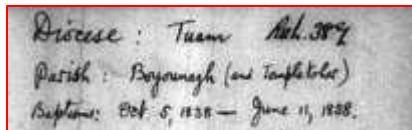 Diocese : Tuam
Parish : Boyounagh (and Templetoher)
Baptisms: Oct 5, 1838 — June 11, 1858.